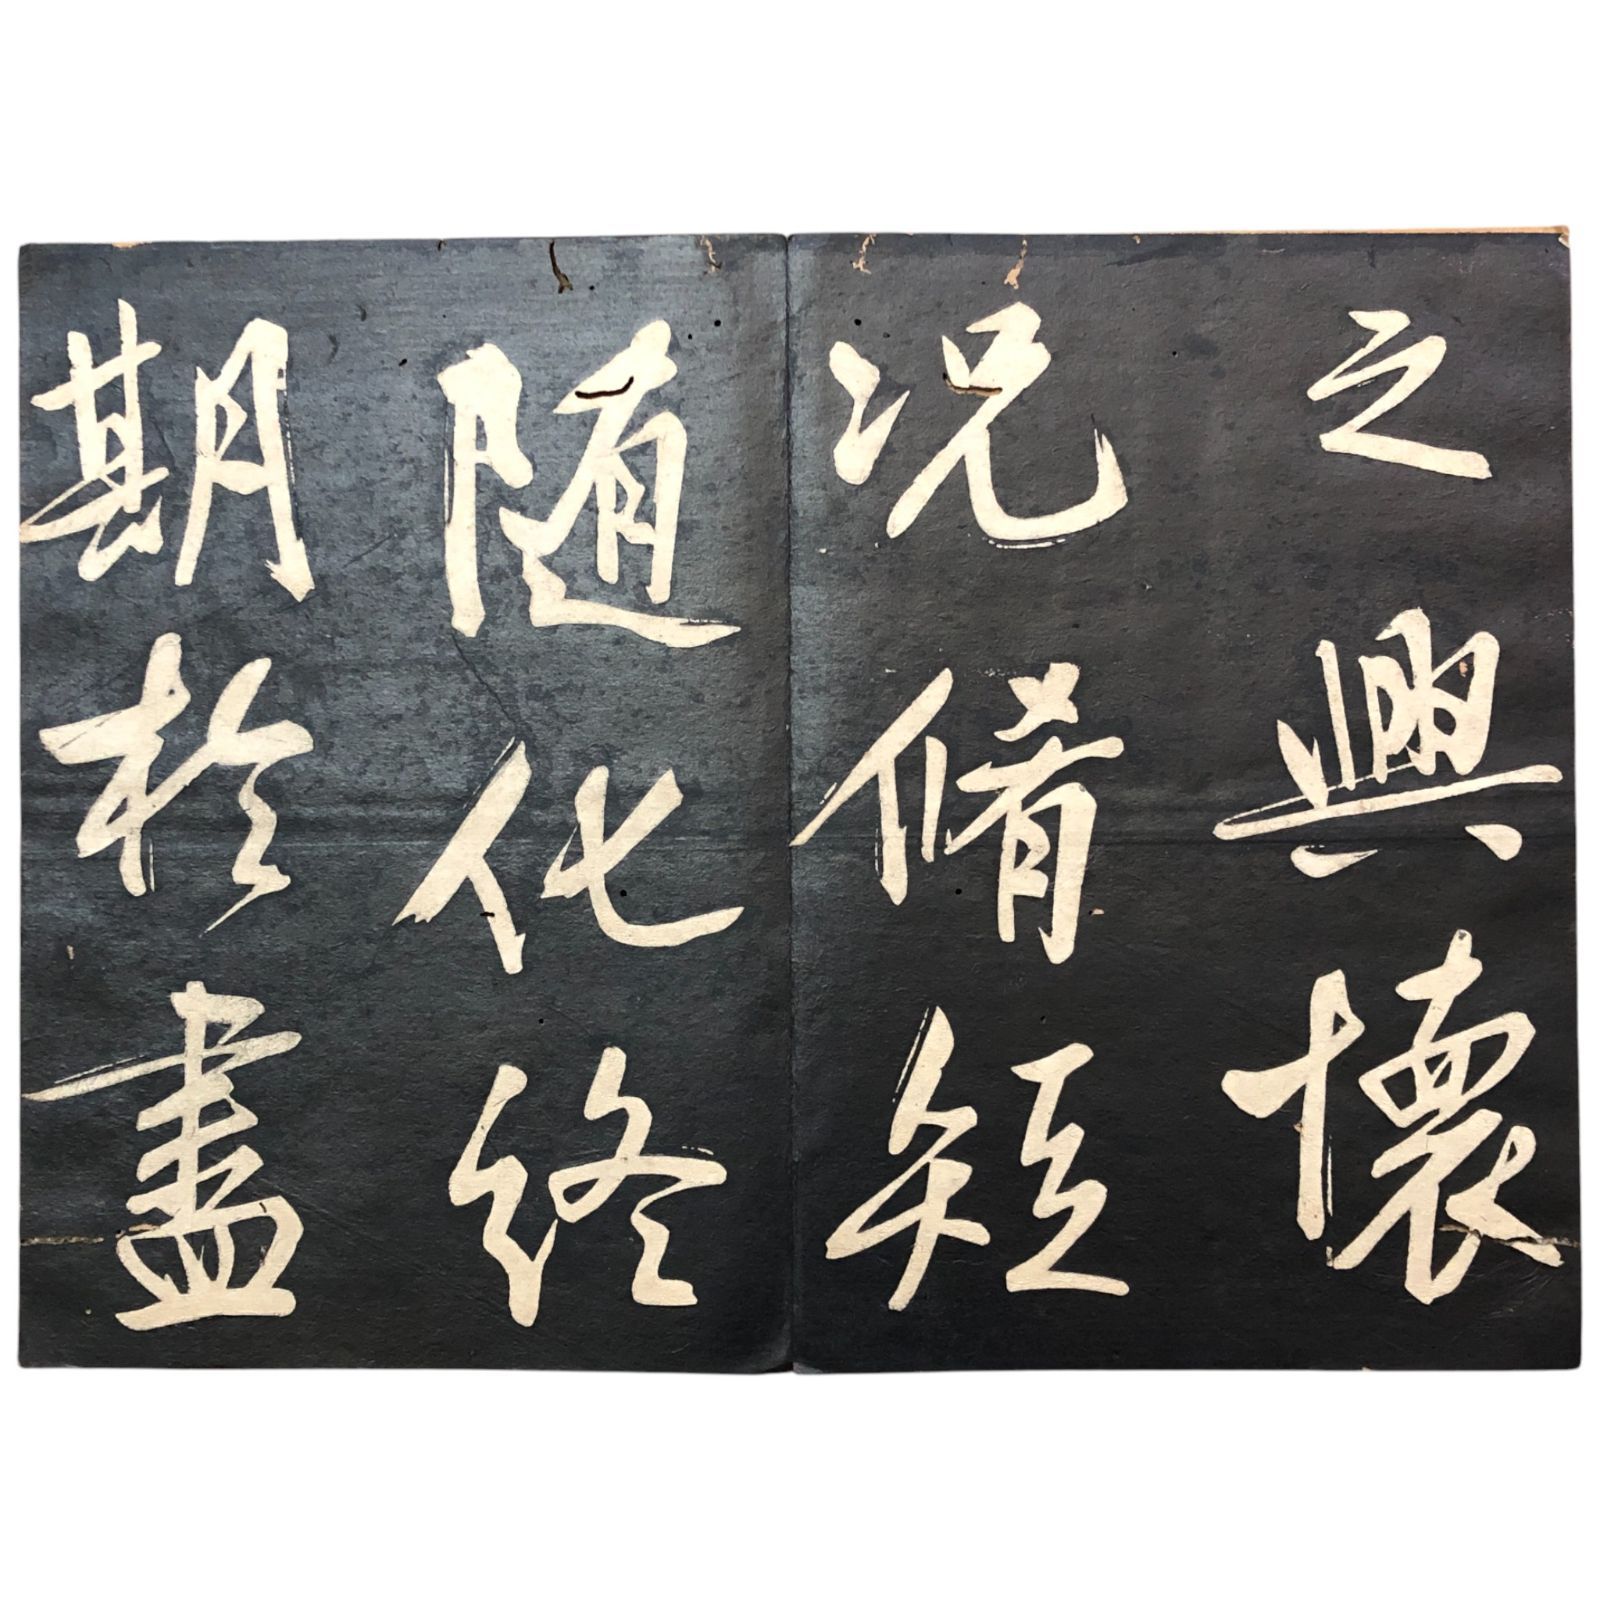 之興懷
况脩短
随化終
期於盡